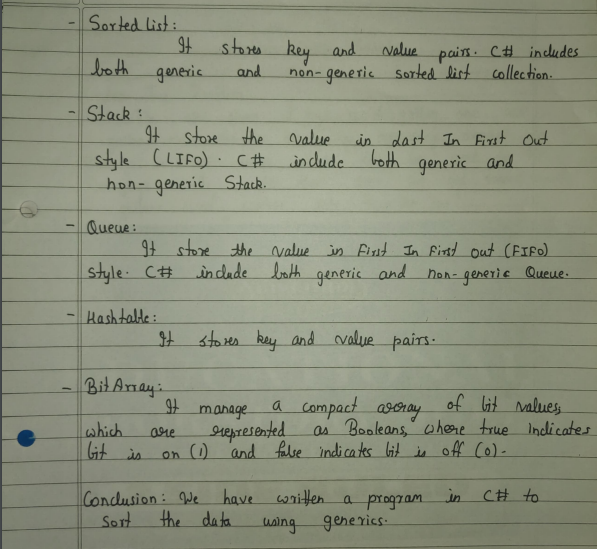 - Sorted List:
It stores key and value pairs. C# includes
both generic and non-generic sorted list collection.
- Stack:
It store the value in Last In First Out
style (LIFO). C# include both generic and
non-generic Stack.
- Queue:
It store the value in First In First Out (FIFO)
style. C# include both generic and non-generic Queue.
- Hashtable:
It stores key and value pairs.
- Bit Array:
It manage a compact array of bit values,
which are represented as Booleans, where true indicates
bit is on (1) and false indicates bit is off (0).
Conclusion: We have written a program in C# to
sort the data using generics.